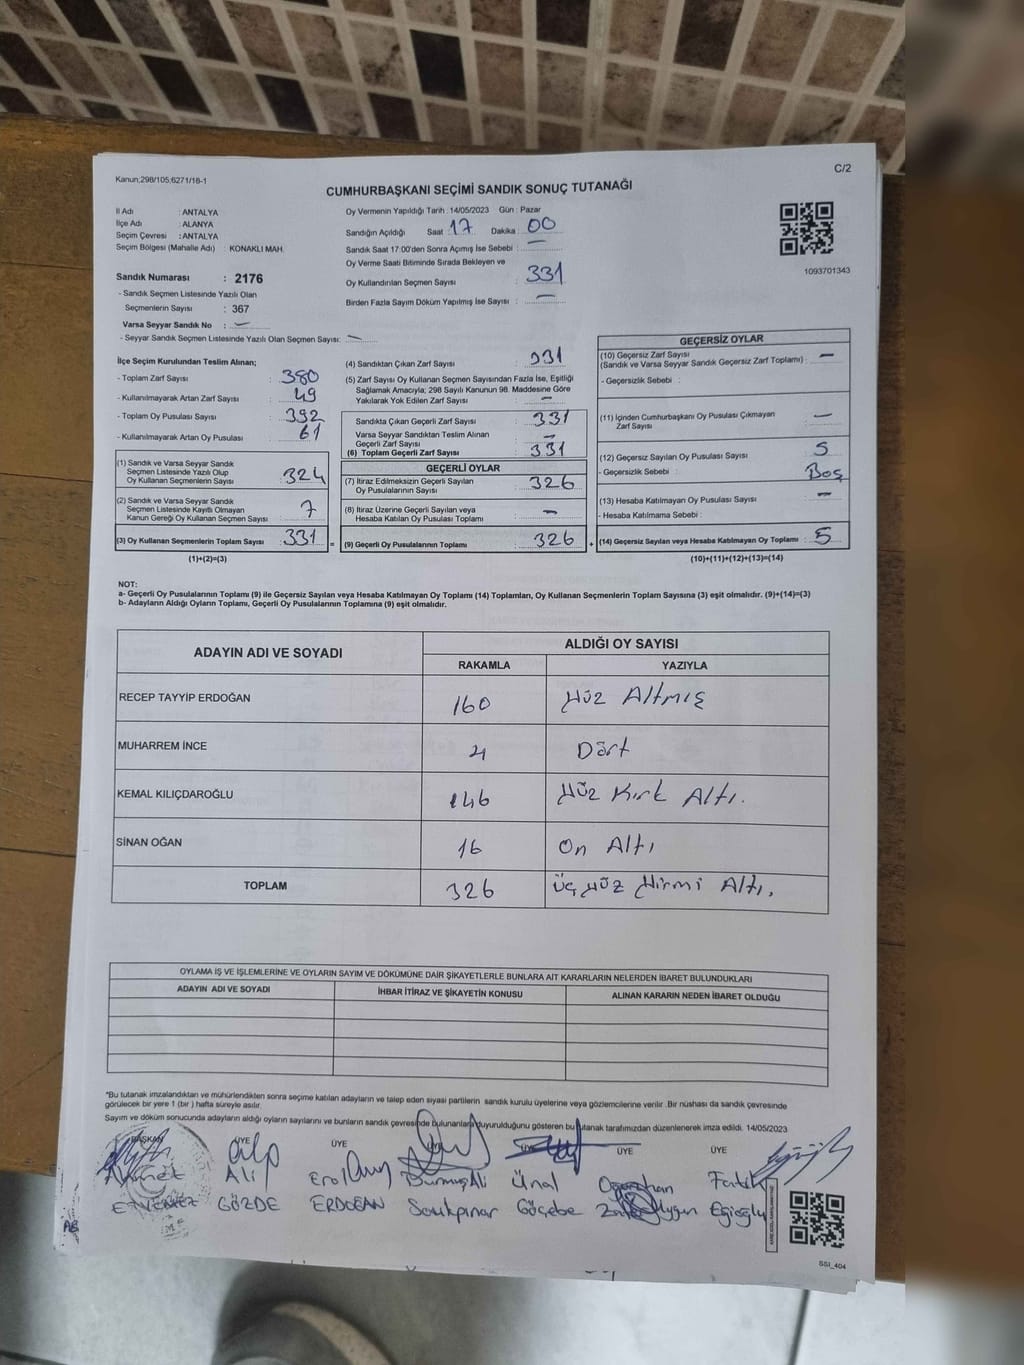 C/2
Kanun;298/105;6271/18-1
CUMHURBAŞKANI SEÇİMİ SANDIK SONUÇ TUTANAĞI
İl Adı : ANTALYA
İlçe Adı : ALANYA
Seçim Çevresi : ANTALYA
Seçim Bölgesi (Mahalle Adı) : KONAKLI MAH.
Sandık Numarası : 2176
- Sandık Seçmen Listesinde Yazılı Olan
Seçmenlerin Sayısı : 367
Varsa Seyyar Sandık No : —
- Seyyar Sandık Seçmen Listesinde Yazılı Olan Seçmen Sayısı: —
Oy Vermenin Yapıldığı Tarih : 14/05/2023 Gün : Pazar
Sandığın Açıldığı Saat : 17 Dakika : 00
Sandık Saat 17:00'den Sonra Açımış İse Sebebi : —
Oy Verme Saati Bitiminde Sırada Bekleyen ve
Oy Kullandırılan Seçmen Sayısı : 331
Birden Fazla Sayım Döküm Yapılmış İse Sayısı : —
1093701343
İlçe Seçim Kurulundan Teslim Alınan;
- Toplam Zarf Sayısı : 380
- Kullanılmayarak Artan Zarf Sayısı : 49
- Toplam Oy Pusulası Sayısı : 392
- Kullanılmayarak Artan Oy Pusulası : 61
(1) Sandık ve Varsa Seyyar Sandık
Seçmen Listesinde Yazılı Olup
Oy Kullanan Seçmenlerin Sayısı : 324
(2) Sandık ve Varsa Seyyar Sandık
Seçmen Listesinde Kayıtlı Olmayan
Kanun Gereği Oy Kullanan Seçmen Sayısı : 7
(3) Oy Kullanan Seçmenlerin Toplam Sayısı : 331 =
(1)+(2)=(3)
(4) Sandıktan Çıkan Zarf Sayısı : 331
(5) Zarf Sayısı Oy Kullanan Seçmen Sayısından Fazla İse, Eşitliği
Sağlamak Amacıyla; 298 Sayılı Kanunun 98. Maddesine Göre
Yakılarak Yok Edilen Zarf Sayısı : —
Sandıkta Çıkan Geçerli Zarf Sayısı : 331
Varsa Seyyar Sandıktan Teslim Alınan
Geçerli Zarf Sayısı : —
(6) Toplam Geçerli Zarf Sayısı : 331
GEÇERLİ OYLAR
(7) İtiraz Edilmeksizin Geçerli Sayılan
Oy Pusulalarının Sayısı : 326
(8) İtiraz Üzerine Geçerli Sayılan veya
Hesaba Katılan Oy Pusulası Toplamı : —
(9) Geçerli Oy Pusulalarının Toplamı : 326 +
GEÇERSİZ OYLAR
(10) Geçersiz Zarf Sayısı
(Sandık ve Varsa Seyyar Sandık Geçersiz Zarf Toplamı) : —
- Geçersizlik Sebebi :
(11) İçinden Cumhurbaşkanı Oy Pusulası Çıkmayan
Zarf Sayısı : —
(12) Geçersiz Sayılan Oy Pusulası Sayısı : 5
- Geçersizlik Sebebi : Boş
(13) Hesaba Katılmayan Oy Pusulası Sayısı : —
- Hesaba Katılmama Sebebi :
(14) Geçersiz Sayılan veya Hesaba Katılmayan Oy Toplamı : 5
(10)+(11)+(12)+(13)=(14)
NOT:
a- Geçerli Oy Pusulalarının Toplamı (9) ile Geçersiz Sayılan veya Hesaba Katılmayan Oy Toplamı (14) Toplamları, Oy Kullanan Seçmenlerin Toplam Sayısına (3) eşit olmalıdır. (9)+(14)=(3)
b- Adayların Aldığı Oyların Toplamı, Geçerli Oy Pusulalarının Toplamına (9) eşit olmalıdır.
ADAYIN ADI VE SOYADI ALDIĞI OY SAYISI
RAKAMLA YAZIYLA
RECEP TAYYİP ERDOĞAN 160 Yüz Altmış
MUHARREM İNCE 4 Dört
KEMAL KILIÇDAROĞLU 146 Yüz Kırk Altı.
SİNAN OĞAN 16 On Altı
TOPLAM 326 Üç Yüz Yirmi Altı.
OYLAMA İŞ VE İŞLEMLERİNE VE OYLARIN SAYIM VE DÖKÜMÜNE DAİR ŞİKAYETLERLE BUNLARA AİT KARARLARIN NELERDEN İBARET BULUNDUKLARI
ADAYIN ADI VE SOYADI İHBAR İTİRAZ VE ŞİKAYETİN KONUSU ALINAN KARARIN NEDEN İBARET OLDUĞU
*Bu tutanak imzalandıktan ve mühürlendikten sonra seçime katılan adayların ve talep eden siyasi partilerin sandık kurulu üyelerine veya gözlemcilerine verilir .Bir nüshası da sandık çevresinde
görülecek bir yere 1 (bir ) hafta süreyle asılır.
Sayım ve döküm sonucunda adayların aldığı oyların sayılarını ve bunların sandık çevresinde bulunanlara duyurulduğunu gösteren bu tutanak tarafımızdan düzenlenerek imza edildi. 14/05/2023
BAŞKAN ÜYE ÜYE ÜYE ÜYE ÜYE
Ahmet Ali Erol Durmuş Ali Ünal Oğuzhan Fatih
GÖZDE ERDOĞAN Sarıkpınar Göçebe Uygun Eğioğlu
SSI_404